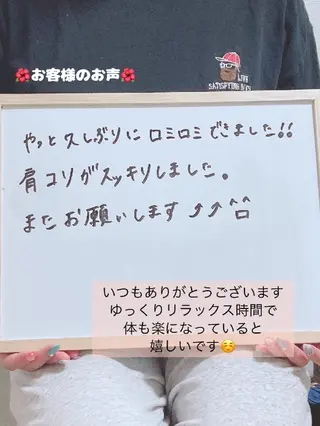 🌺お客様のお声🌺
LIVE
やっと久しぶりにロミロミできました!!
肩コリがスッキリしました。
またお願いします⤴⤴^□^
いつもありがとうございます
ゆっくりリラックス時間で
体も楽になっていると
嬉しいです☺️